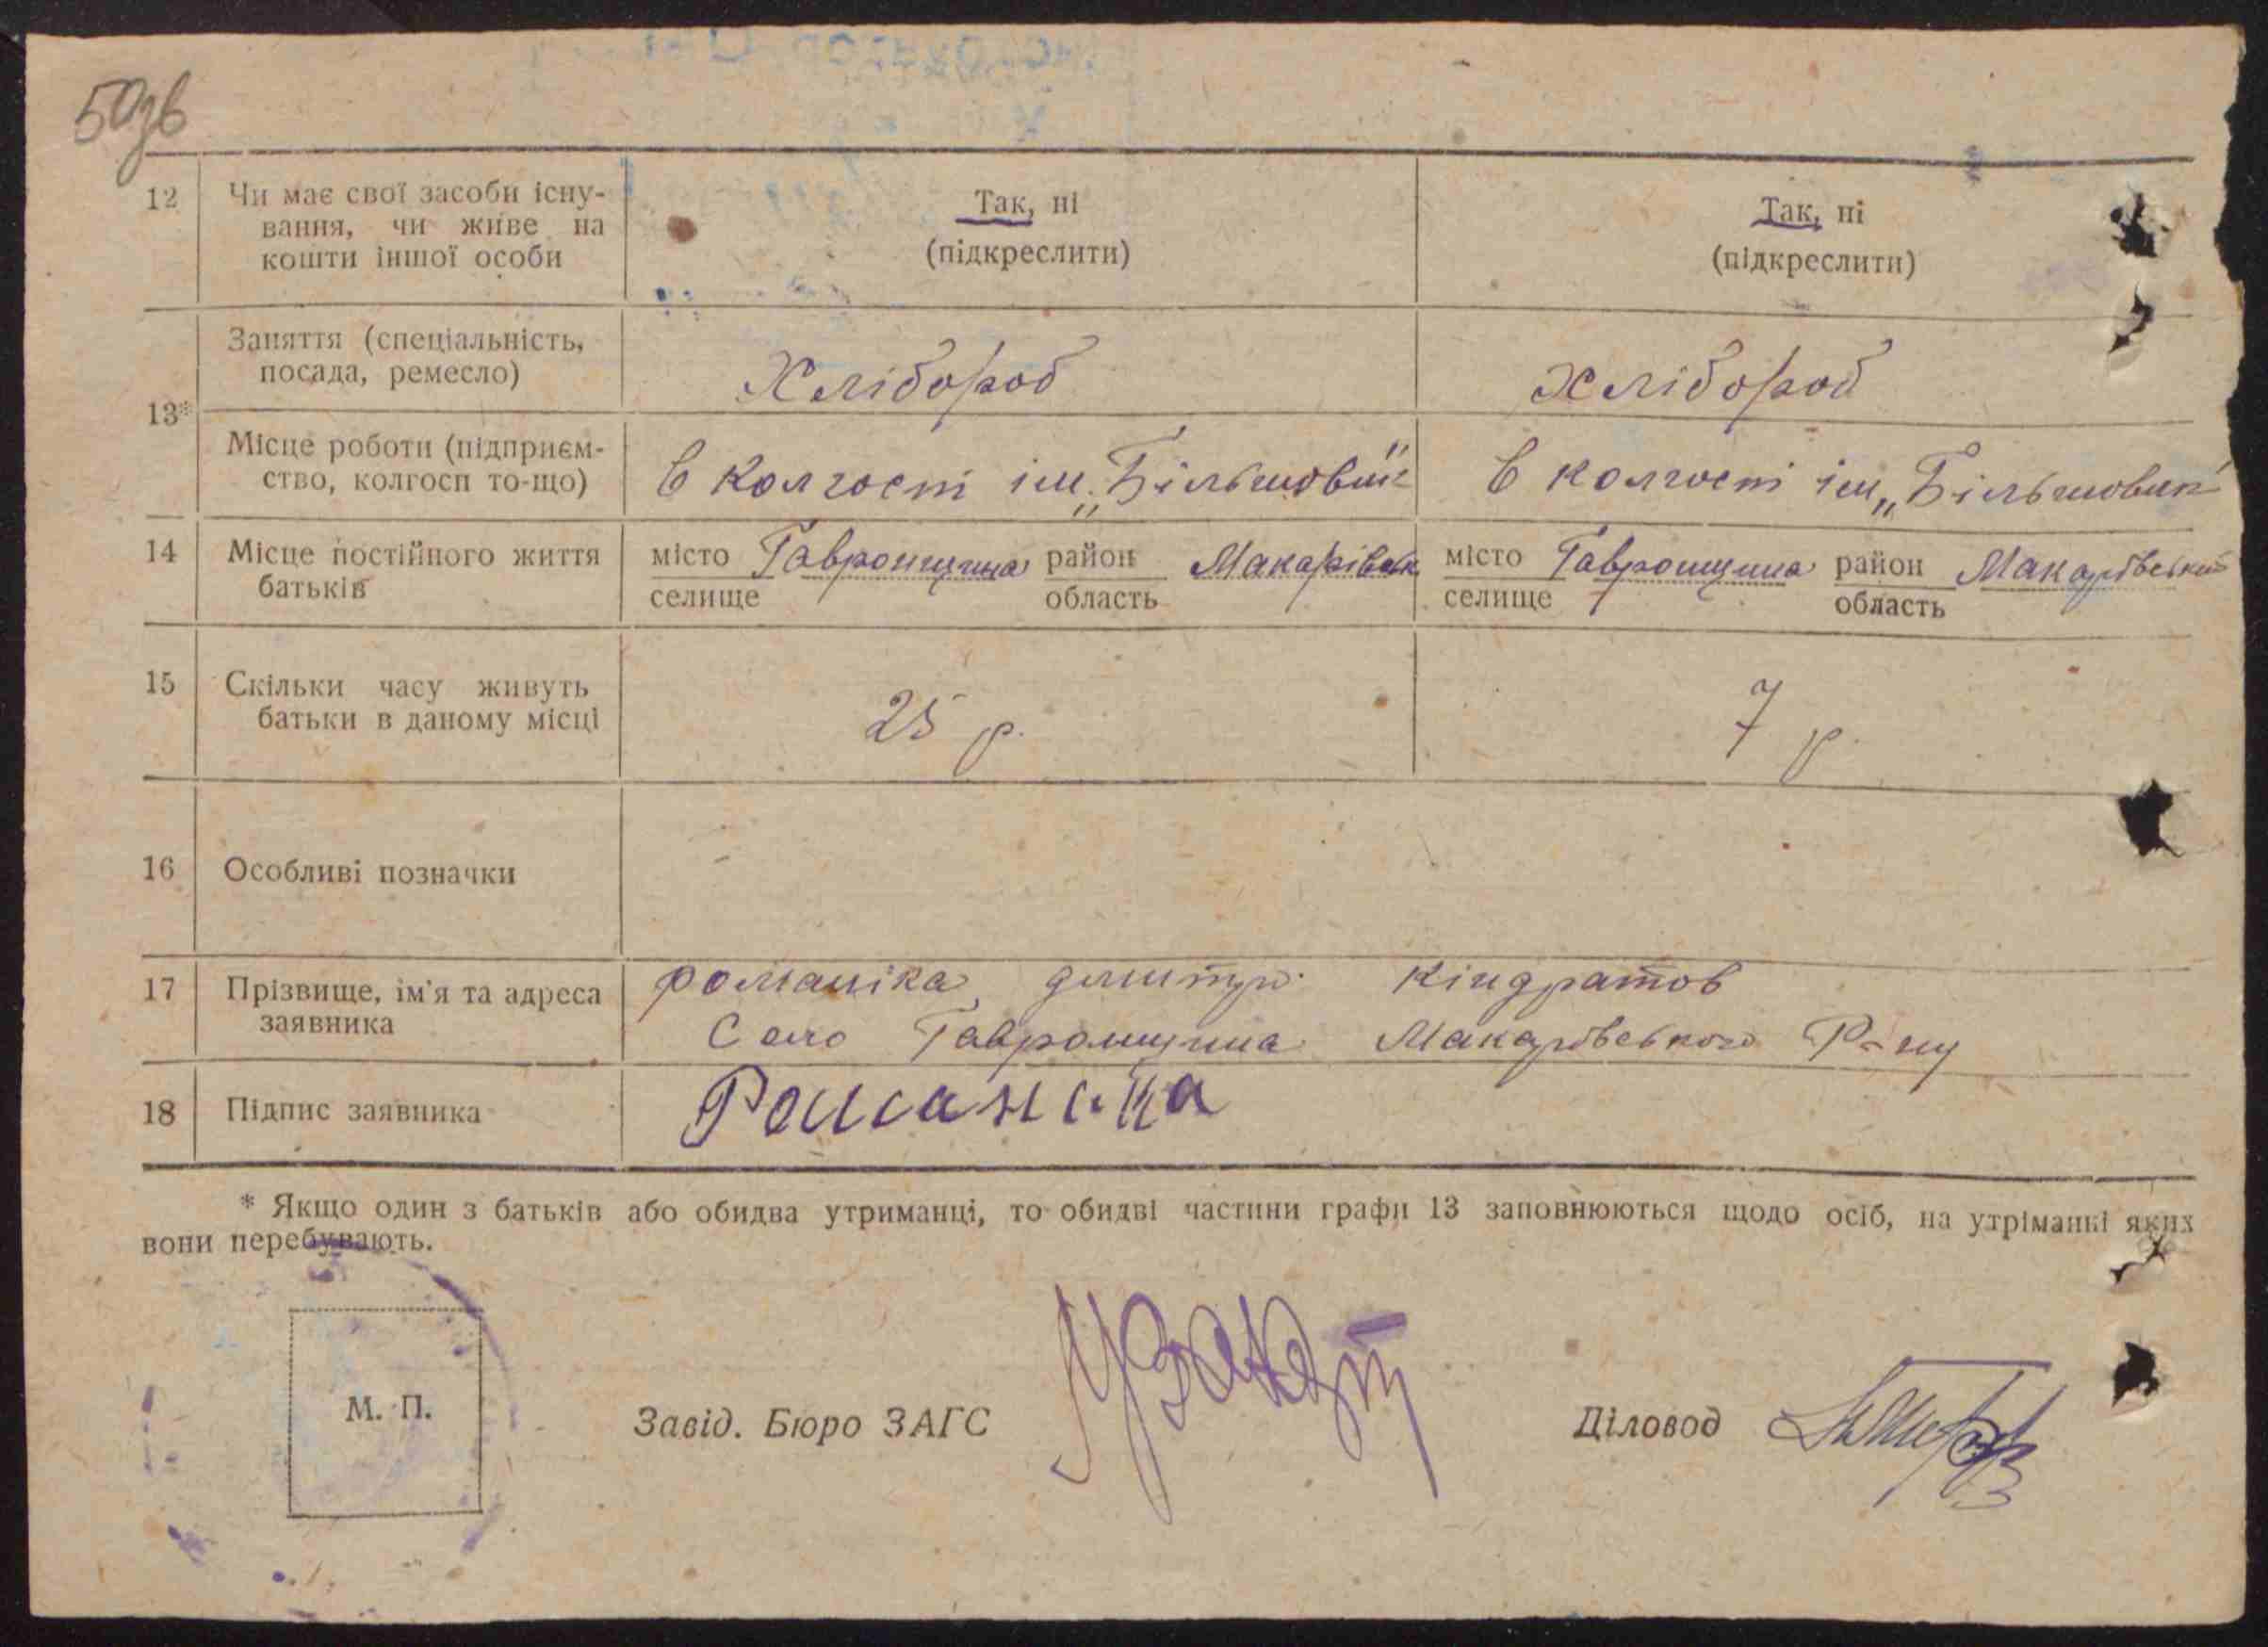 50зв
12 Чи має свої засоби існу-
вання, чи живе на
кошти іншої особи
Так, ні
(підкреслити)
Так, ні
(підкреслити)
13*
Заняття (спеціальність,
посада, ремесло)
Хлібороб
Хлібороб
Місце роботи (підприєм-
ство, колгосп то-що)
в колгоспі ім. „Більшовик"
в колгоспі ім „Більшовик"
14 Місце постійного життя
батьків
місто Гавронщина район Макарівськ
селище область
місто Гавронщина район Макарівський
селище область
15 Скільки часу живуть
батьки в даному місці
25 р.
7 р.
16 Особливі позначки
17 Прізвище, ім'я та адреса
заявника
романіка дмитро кіндратов
Село Гавронщина Макарівського Р-ну
18 Підпис заявника
Романіка
* Якщо один з батьків або обидва утриманці, то обидві частини графи 13 заповнюються щодо осіб, на утріманні яких
вони перебувають.
М. П.
Завід. Бюро ЗАГС
Діловод